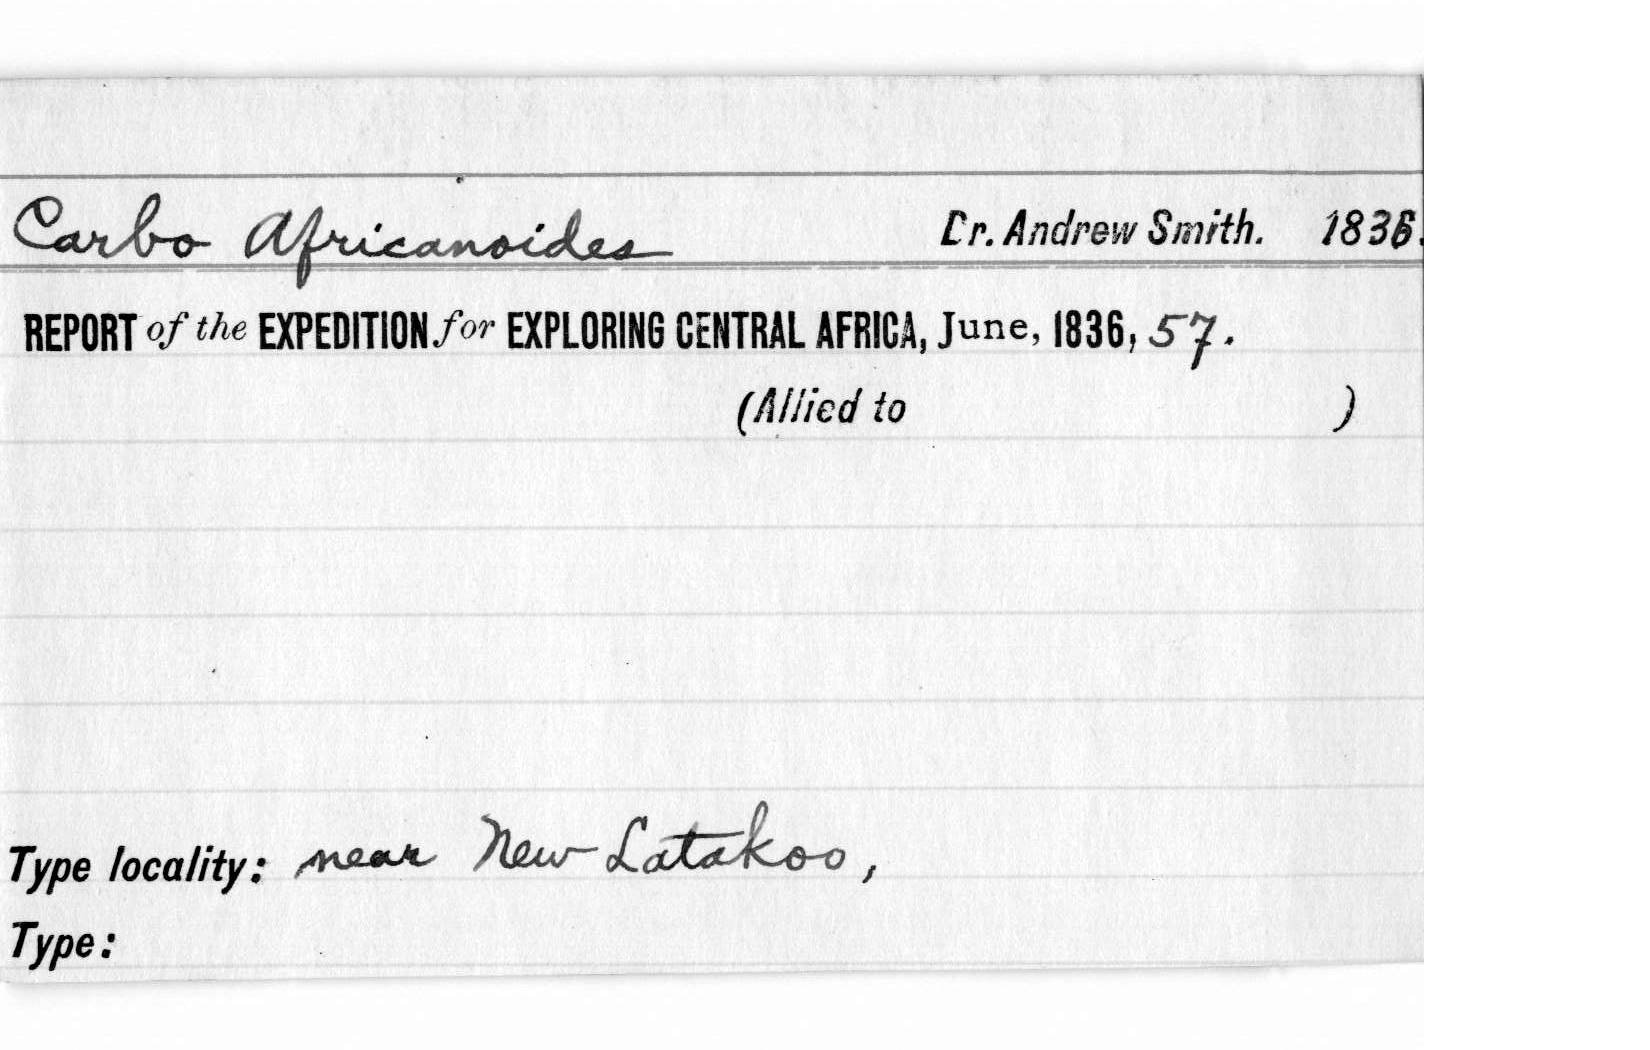 Carbo Africanoides Dr. Andrew Smith. 1836.
REPORT of the EXPEDITION for EXPLORING CENTRAL AFRICA, June, 1836, 57.
(Allied to )
Type locality: near New Latakoo,
Type: